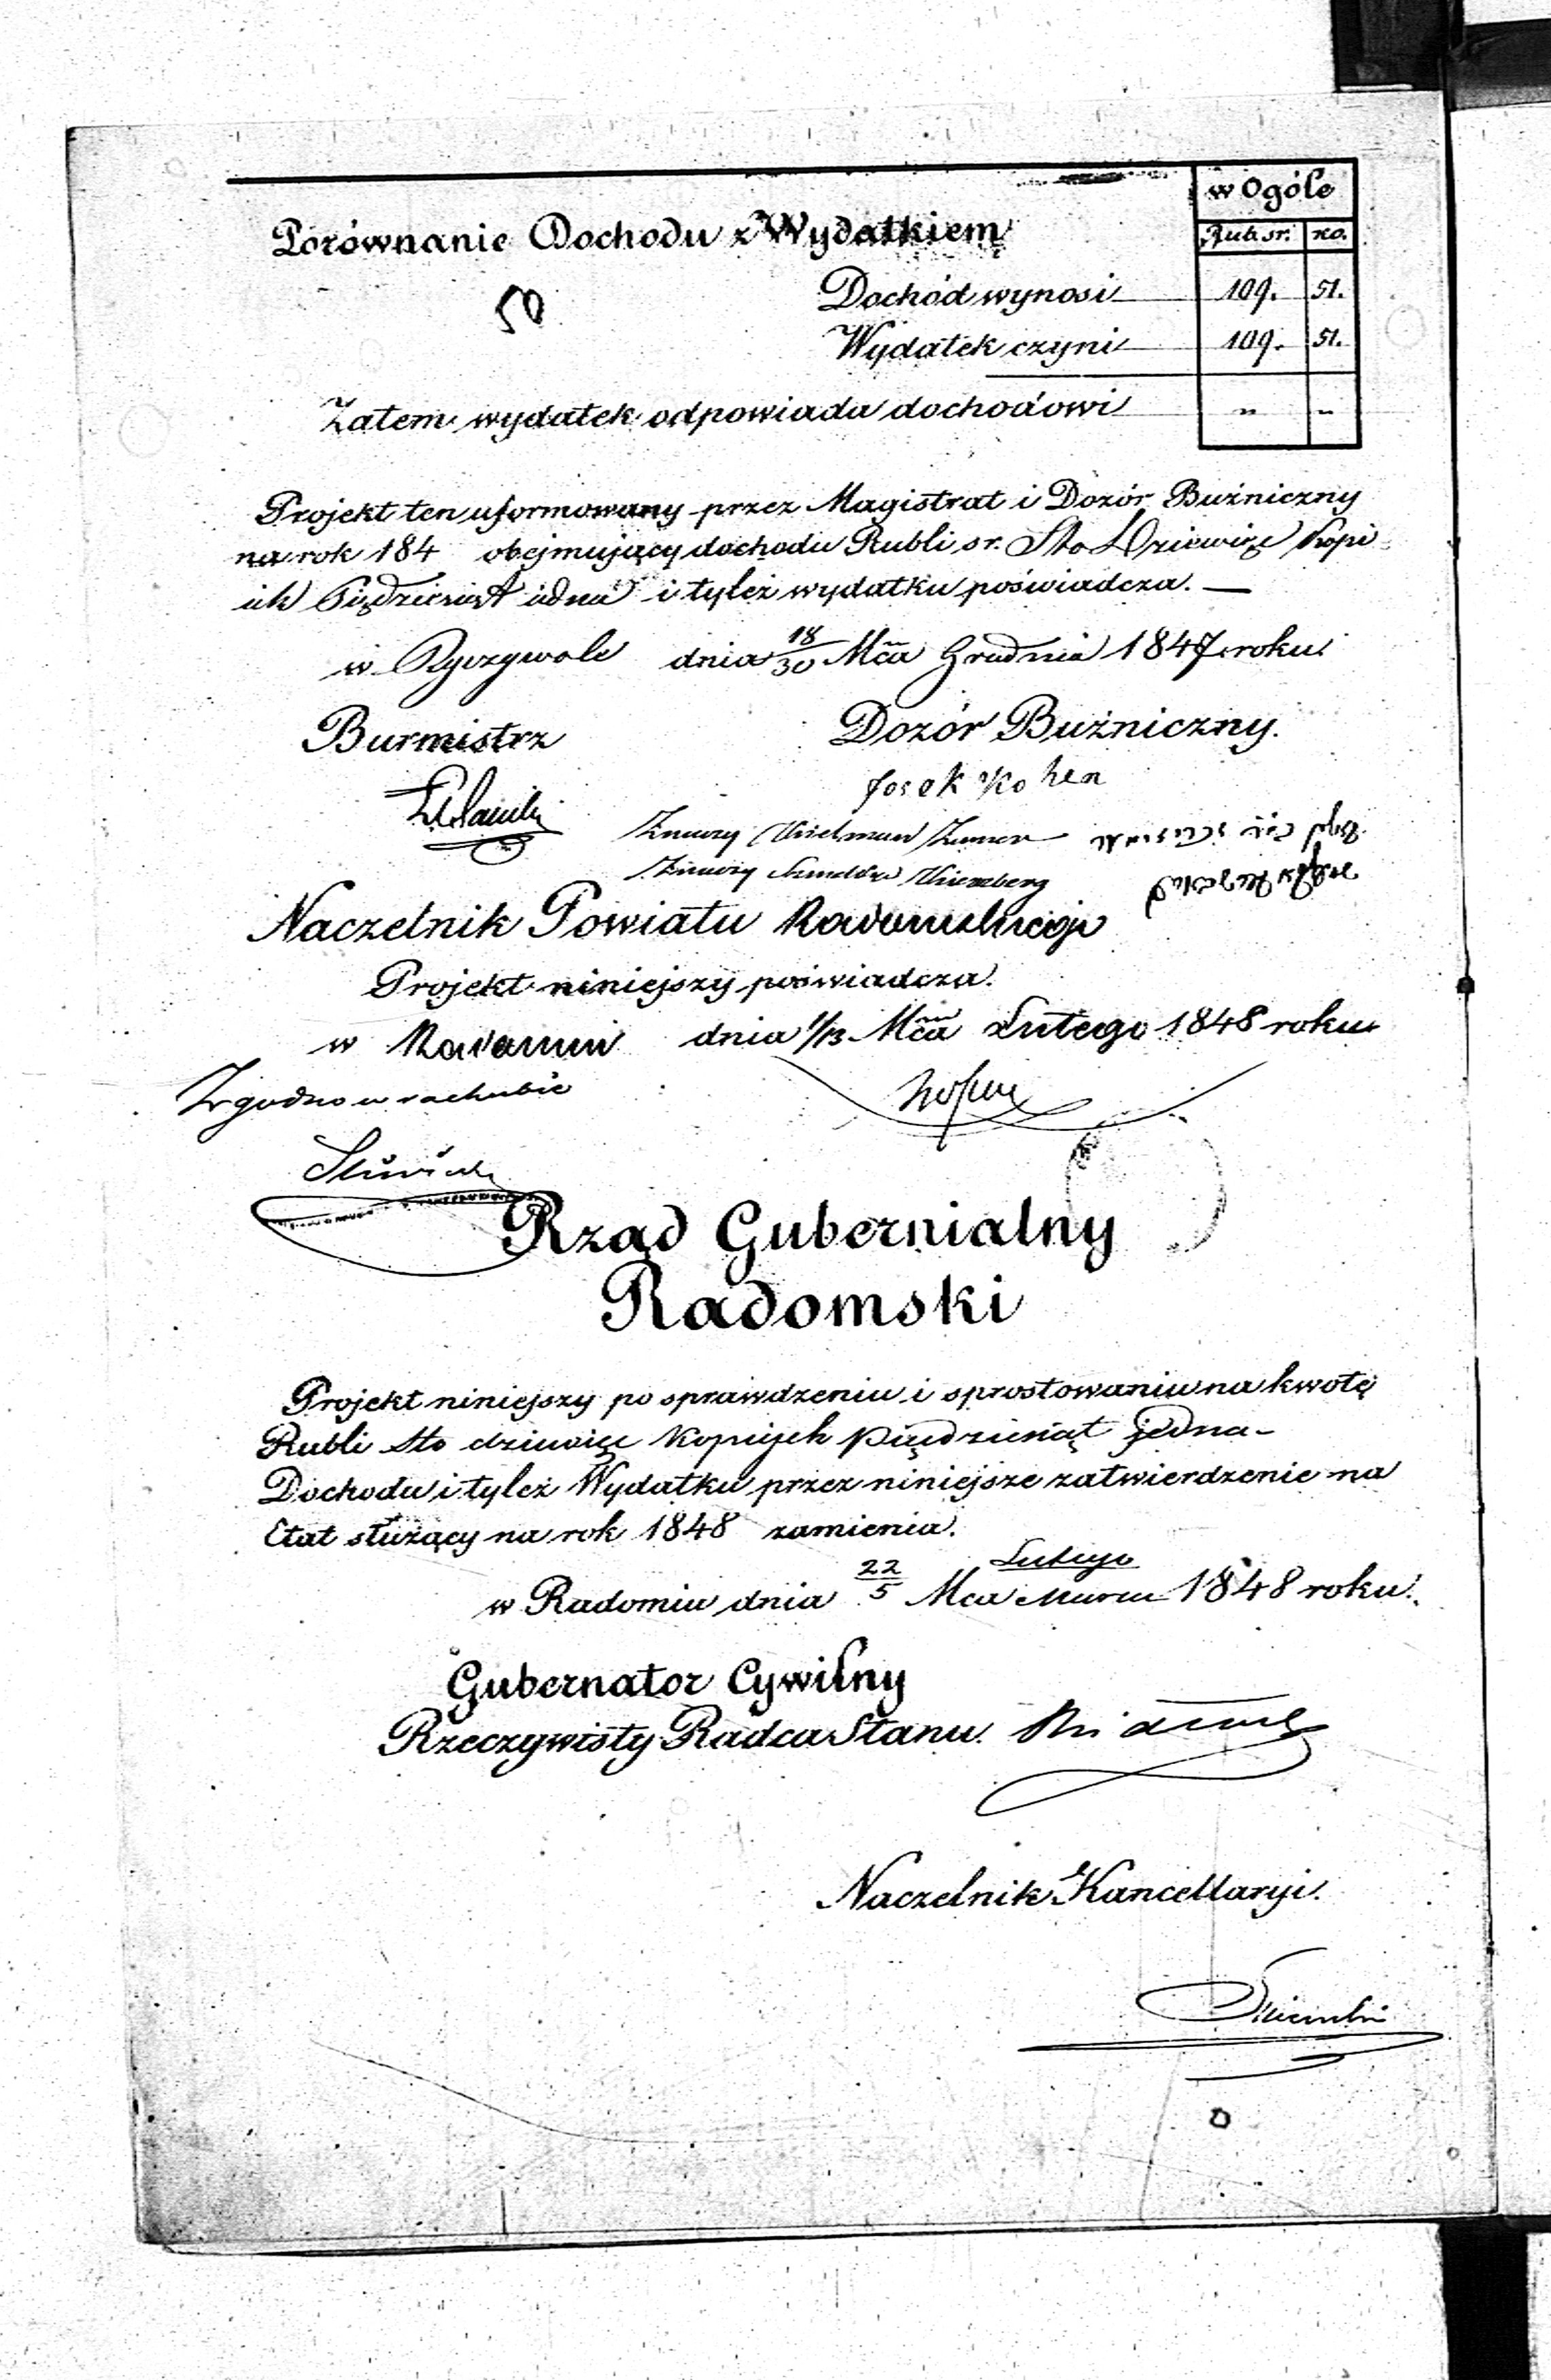 w Ogóle
Rub. sr. ko.
Porównanie Dochodu z Wydatkiem
Dochód wynosi 109. 51.
Wydatek czyni 109. 51.
Zatem wydatek odpowiada dochodowi " "
Projekt ten uformowany przez Magistrat i Dozór Bużniczny
na rok 184 obejmujący dochodu Rubli sr. Sto Dziewięc Kopi-
iek Pięдziesiąt iedna i tyleż wydatku poświadcza. —
w Ryczywole dnia 18/30 Mca Grudnia 1847 roku.
Burmistrz Dozór Bużniczny.
Josek Kohen
Naczelnik Powiatu Radomskiego
Projekt niniejszy poświadcza.
w Radomiu dnia 1/13 Mca Lutego 1848 roku
Zgodno w rachubie
Rząd Gubernialny
Radomski
Projekt niniejszy po sprawdzeniu i sprostowaniu na kwotę
Rubli sto dziewięc Kopiejek pięдziesiąt jedna -
Dochodu i tyleż Wydatku przez niniejsze zatwierdzenie na
Etat służący na rok 1848 zamienia.
Lutego
w Radomiu dnia 22/5 Mca Marca 1848 roku.
Gubernator Cywilny
Rzeczywisty Radca Stanu.
Naczelnik Kancellaryi.